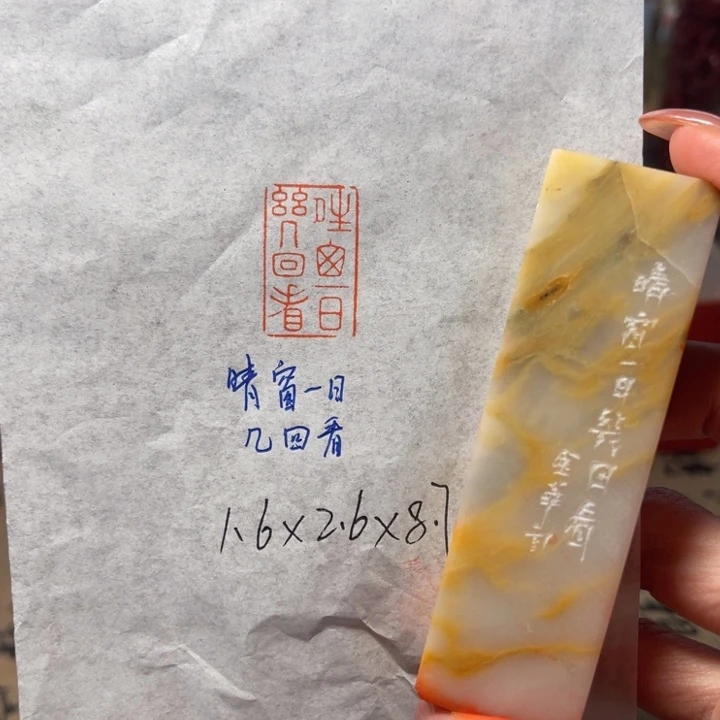 晴窗一日
幾回看
晴窗一日
几回看
1.6×2.6×8.7
晴窗一日幾回看
金華記